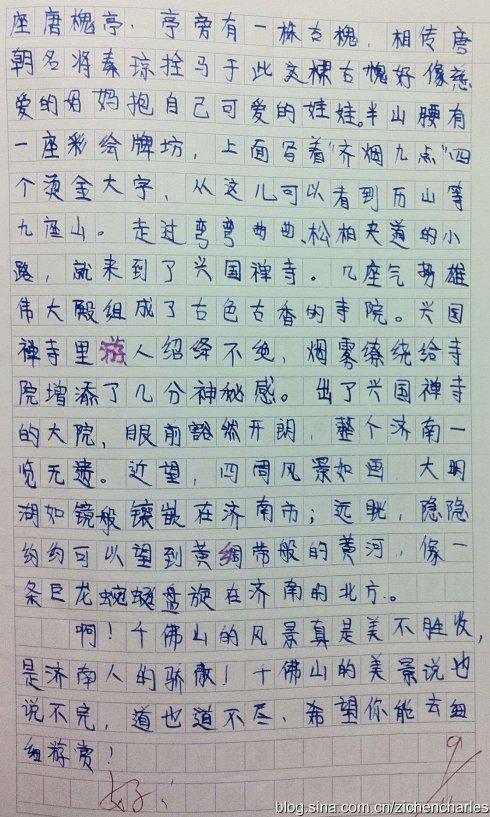 座唐槐亭．亭旁有一株古槐，相传唐
朝名将秦琼拴马于此文棵古槐好像慈
爱的母妈抱自己可爱的娃娃。半山腰有
一座彩绘牌坊，上面写着“齐烟九点”四
个烫金大字，从这儿可以看到历山等
九座山。走过弯弯曲曲、松柏夹道的小
路，就来到了兴国禅寺。几座气势雄
伟大殿组成了古色古香的寺院。兴国
禅寺里游人绍绎不绝，烟雾缭绕给寺
院增添了几分神秘感。出了兴国禅寺
的大院，眼前豁然开朗，整个济南一
览无遗。近望，四周风景如画，大明
湖如镜般镶嵌在济南市；远眺，隐隐
约约可以望到黄绸带般的黄河，像一
条巨龙蜿蜒盘旋在济南的北方。
啊！千佛山的风景真是美不胜收，
是济南人的骄傲！千佛山的美景说也
说不完，道也道不尽．希望你能去细
细游赏！
好！
blog.sina.com.cn/zichencharles